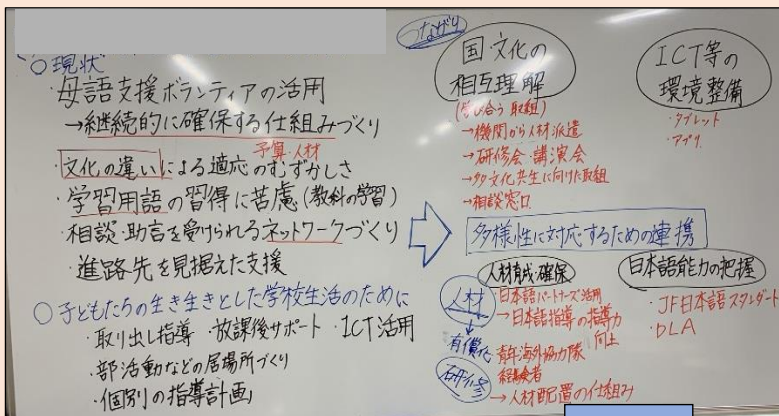 ○現状
・母語支援ボランティアの活用
→継続的に確保する仕組みづくり
予算・人材
・文化の違いによる適応のむずかしさ
・学習用語の習得に苦慮(教科の学習)
・相談・助言を受けられるネットワークづくり
・進路先を見据えた支援
○子どもたちの生き生きとした学校生活のために
・取り出し指導 ・放課後サポート ・ICT活用
・部活動などの居場所づくり
・個別の指導計画
つながり
国・文化の
相互理解
(学び合う取組)
→機関から人材派遣
→研修会・講演会
→多文化共生に向けた取組
→相談窓口
ICT等の
環境整備
・タブレット
・アプリ
多様性に対応するための連携
人材育成・確保
人材
・日本語パートナーズ活用
→日本語指導の指導力
向上
有償化
・青年海外協力隊
経験者
研修
→人材配置の仕組み
日本語能力の把握
・JF日本語スタンダード
・DLA